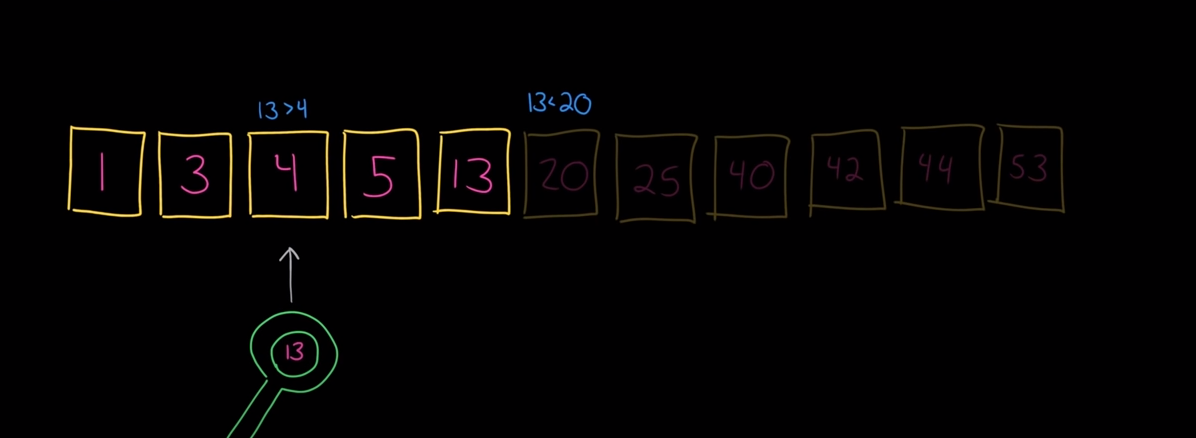 13>4
13<20
1 3 4 5 13 20 25 40 42 44 53
13